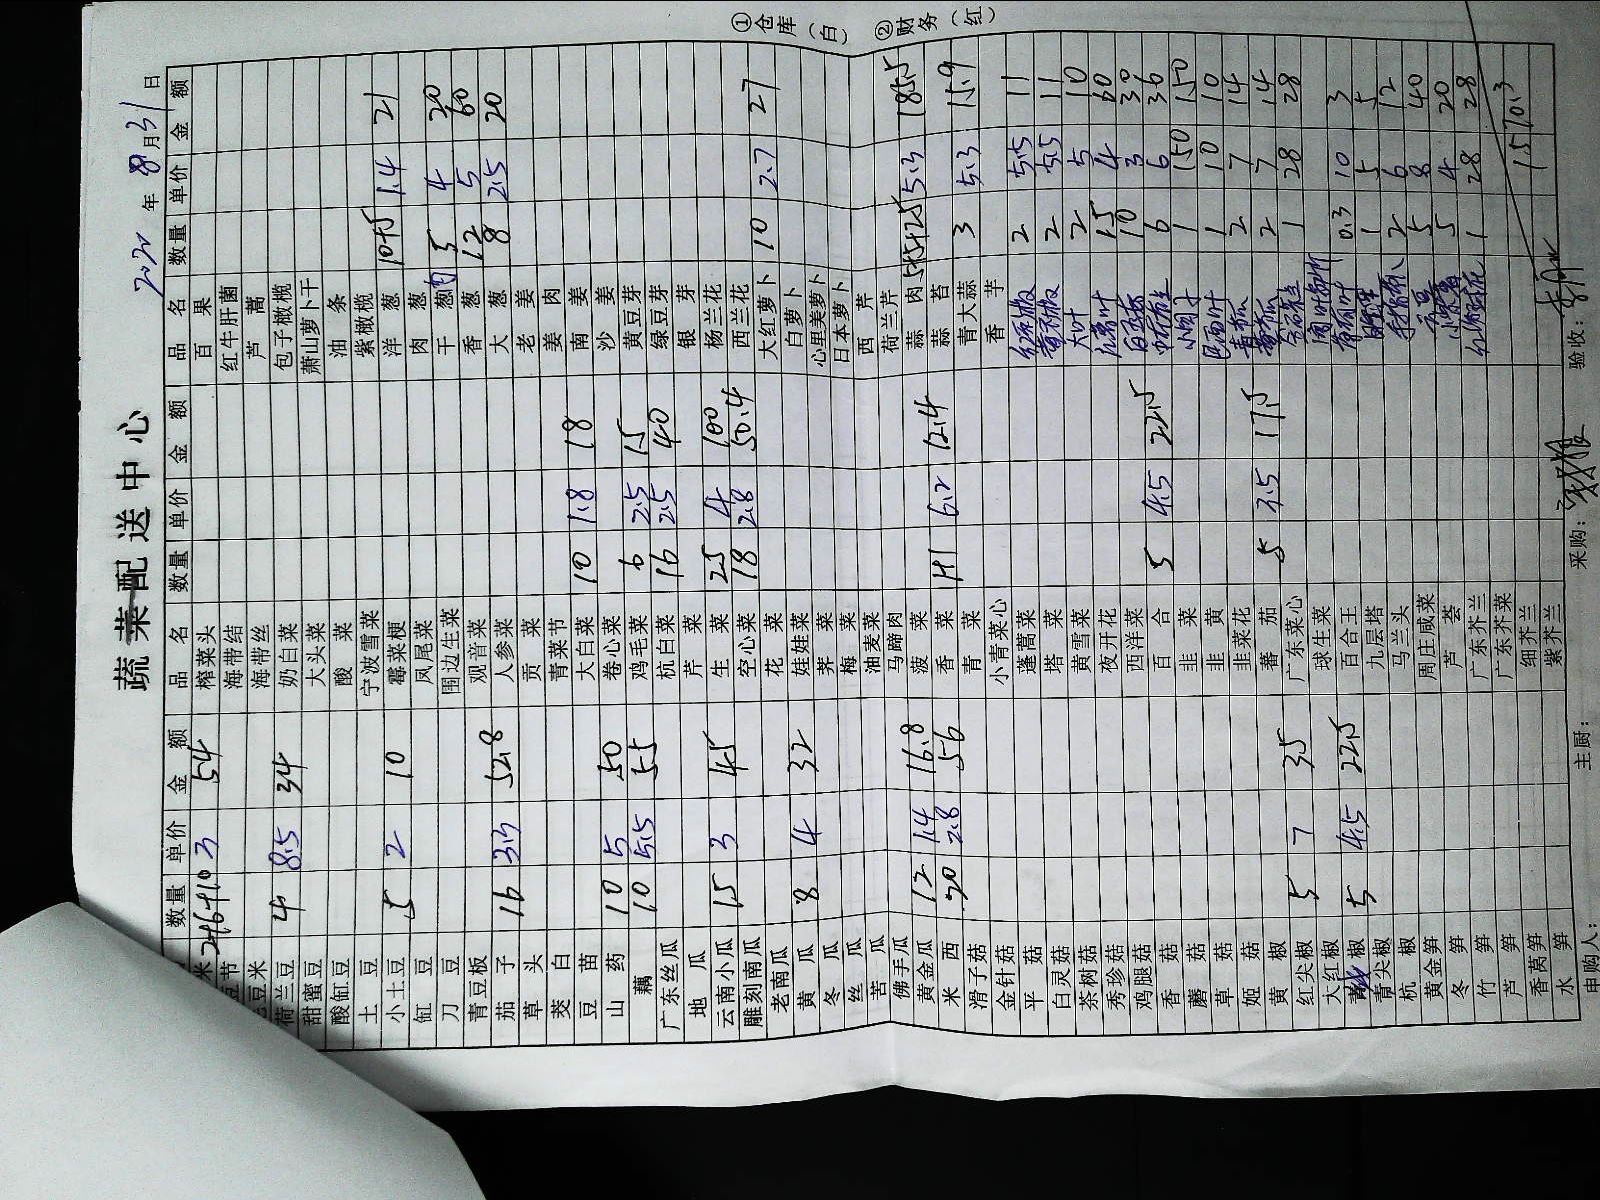 蔬菜配送中心
2020年8月31日
①仓库(白) ②财务(红)
数量 单价 金额 品名 数量 单价 金额 品名 数量 单价 金额
米 2+6+6+10 3 54 榨菜头 百果
豆节 海带结 红牛肝菌
豆米 海带丝 芦蒿
荷兰豆 4 8.5 34 奶白菜 包子橄榄
甜蜜豆 大头菜 萧山萝卜干
酸缸豆 酸菜 油条
土豆 宁波雪菜 紫橄榄
小土豆 5 2 10 霉菜梗 洋葱 10+5 1.4 21
缸豆 凤尾菜 肉葱
刀豆 围边生菜 干葱肉 5 4 20
青豆板 观音菜 香葱 12 5 60
茄子 16 3.3 52.8 人参菜 大葱 8 2.5 20
草头 贡菜 老姜
茭白 青菜节 姜肉
豆苗 大白菜 10 1.8 18 南姜
山药 10 5 50 卷心菜 沙姜
藕 10 5.5 55 鸡毛菜 6 2.5 15 黄豆芽
广东丝瓜 杭白菜 16 2.5 40 绿豆芽
地瓜 芹菜 银芽
云南小瓜 15 3 45 生菜 25 4 100 杨兰花
雕刻南瓜 空心菜 18 2.8 50.4 西兰花
老南瓜 花菜 大红萝卜 10 2.7 27
黄瓜 8 4 32 娃娃菜 白萝卜
冬瓜 荠菜 心里美萝卜
丝瓜 梅菜 日本萝卜
苦瓜 油麦菜 西芹
佛手瓜 马蹄肉 荷兰芹
黄金瓜 12 1.4 16.8 菠菜 蒜肉 5.3 185.5
米西 20 2.8 56 香菜 6.2 12.4 蒜苔
滑子菇 青菜 青大蒜 3 5.3 15.9
金针菇 小青菜心 香芋
平菇 蓬蒿菜 2 5.5 11
白灵菇 塔菜 2 5.5 11
茶树菇 黄雪菜 大叶 2 5 10
秀珍菇 夜开花 15 4 60
鸡腿菇 西洋菜 10 3 30
香菇 百合 5 4.5 22.5 6 6 36
蘑菇 韭菜 1 150 150
草菇 韭黄 1 10 10
姬菇 韭菜花 2 7 14
黄椒 蕃茄 5 3.5 17.5 2 7 14
红尖椒 5 7 35 广东菜心 1 28 28
大红椒 球生菜
青椒 5 4.5 22.5 百合王 0.3 10 3
青尖椒 九层塔 1 5 5
杭椒 马兰头 2 6 12
黄金笋 周庄咸菜 5 8 40
冬笋 芦荟 5 4 20
竹笋 广东芥兰 1 28 28
芦笋 广东芥菜
香莴笋 细芥兰 1570.3
水笋 紫芥兰
申购人: 主厨: 采购: 验收: